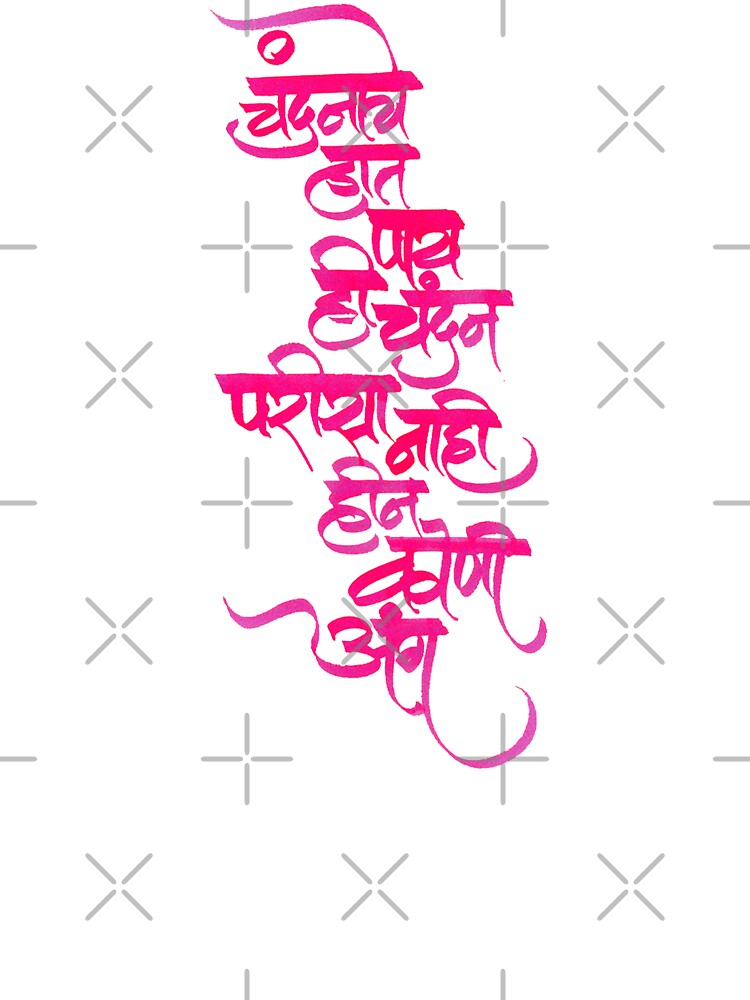 चंदनाचे
हात
पाय
ही चंदन
परीसा नाही
हीन
कोणी
अंग